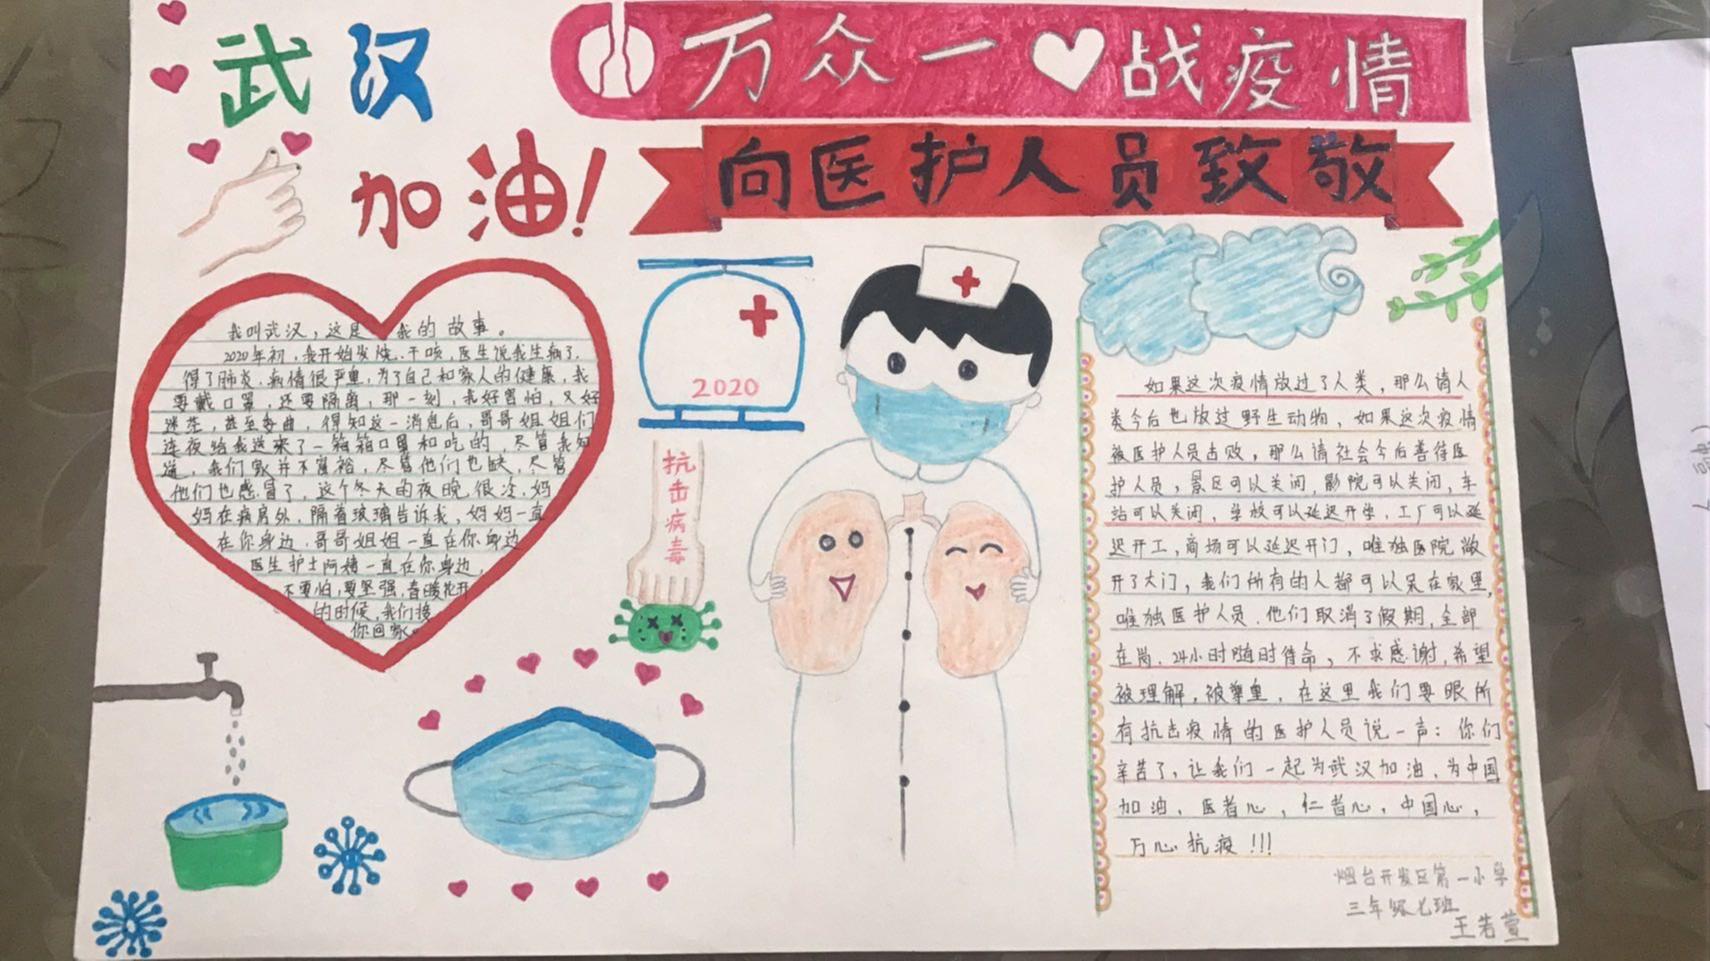 武汉
加油!
万众一 战疫情
向医护人员致敬
我叫武汉，这是我的故事。
2020年初，我开始发烧、干咳，医生说我生病了，
得了肺炎，病情很严重，为了自己和家人的健康，我
要戴口罩，还要隔离，那一刻，我好害怕，又好
迷茫，甚至委曲，得知这一消息后，哥哥姐姐们
连夜给我送来了一箱箱口罩和吃的，尽管我知
道，我们家并不富裕，尽管他们也缺，尽管
他们也感冒了，这个冬天的夜晚，很冷，妈
妈在病房外，隔着玻璃告诉我，妈妈一直
在你身边，哥哥姐姐一直在你身边
医生护士阿姨一直在你身边，
不要怕，要坚强，春暖花开
的时候，我们接
你回家。
2020
抗击病毒
如果这次疫情放过了人类，那么请人
类今后也放过野生动物，如果这次疫情
被医护人员击败，那么请社会今后善待医
护人员，景区可以关闭，影院可以关闭，车
站可以关闭，学校可以延迟开学，工厂可以延
迟开工，商场可以延迟开门，唯独医院敞
开了大门，我们所有的人都可以呆在家里，
唯独医护人员，他们取消了假期，全部
在岗，24小时随时待命，不求感谢，希望
被理解，被尊重，在这里我们要跟所
有抗击疫情的医护人员说一声：你们
辛苦了，让我们一起为武汉加油，为中国
加油，医者心，仁者心，中国心，
万心抗疫!!!
烟台开发区第一小学
三年级七班
王若萱